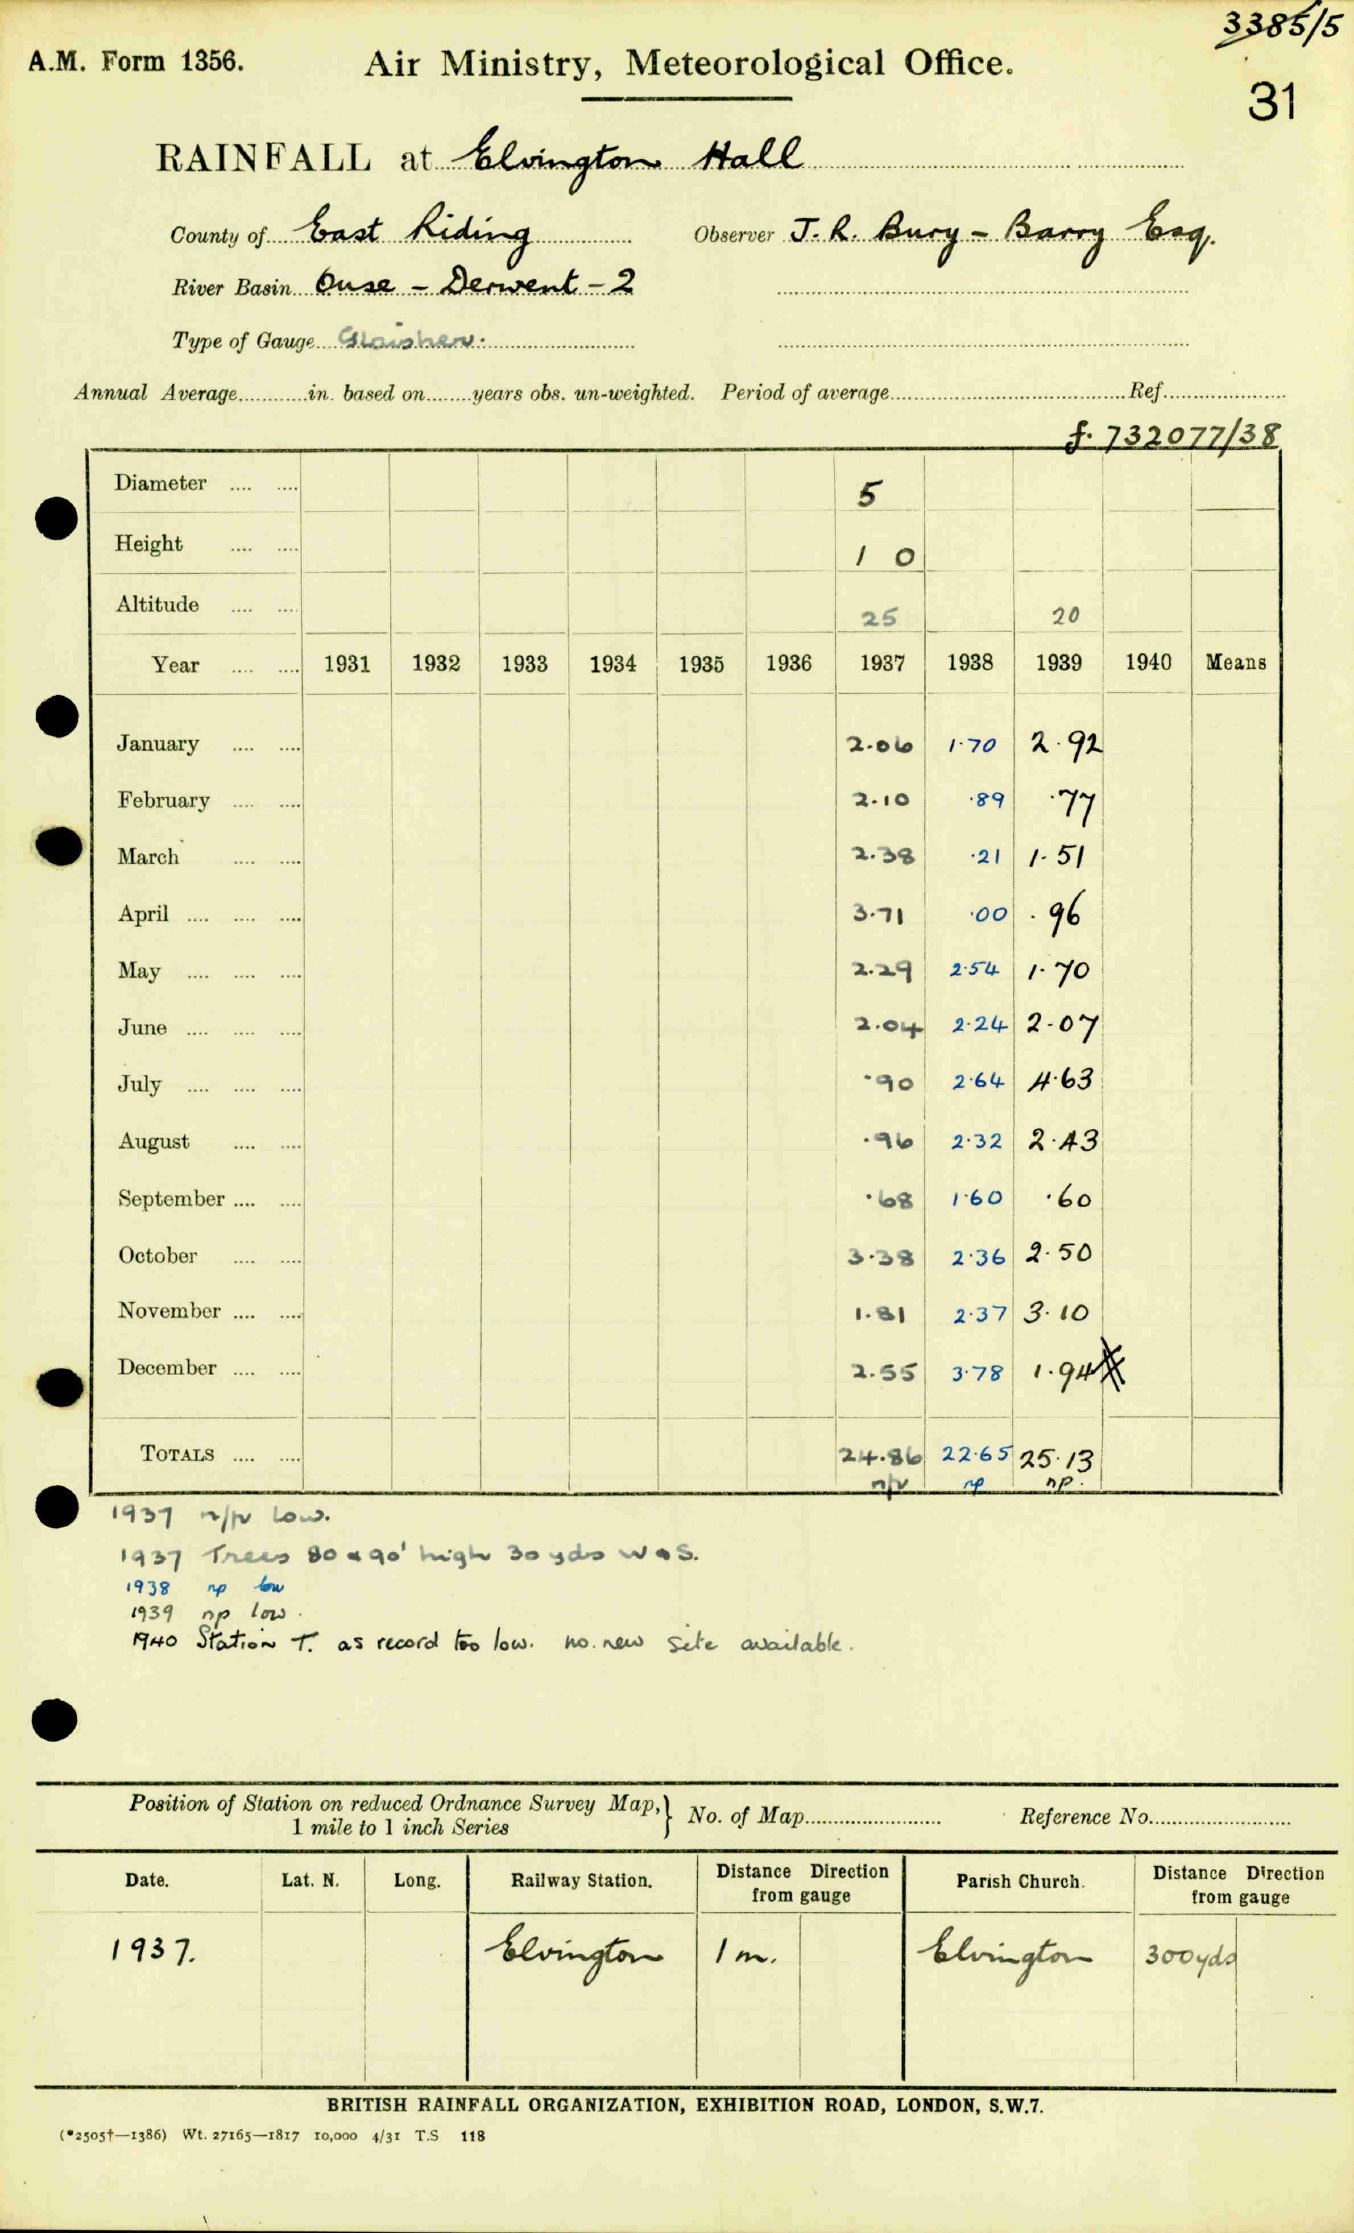 3385/5
A.M. Form 1356. Air Ministry, Meteorological Office.
31
RAINFALL at Elvington Hall
County of East Riding Observer J. R. Bury - Barry Esq.
River Basin Ouse - Derwent - 2
Type of Gauge Glaisher.
Annual Average............in. based on........years obs. un-weighted. Period of average............Ref............
f. 732077/38
Diameter .... .... 5
Height .... .... 1 0
Altitude .... .... 25 20
Year .... .... 1931 1932 1933 1934 1935 1936 1937 1938 1939 1940 Means
January .... .... 2.06 1.70 2.92
February .... .... 2.10 .89 .77
March .... .... 2.38 .21 1.51
April .... .... .... 3.71 .00 .96
May .... .... .... 2.29 2.54 1.70
June .... .... .... 2.04 2.24 2.07
July .... .... .... .90 2.64 4.63
August .... .... .96 2.32 2.43
September .... .... .68 1.60 .60
October .... .... 3.38 2.36 2.50
November .... .... 1.81 2.37 3.10
December .... .... 2.55 3.78 1.94
TOTALS .... .... 24.86 22.65 25.13
n/p np np.
1937 n/p low.
1937 Trees 80 & 90' high 30 yds W & S.
1938 np low
1939 np low.
1940 Station T. as record too low. no new site available.
Position of Station on reduced Ordnance Survey Map, } No. of Map............ Reference No............
1 mile to 1 inch Series
Date. Lat. N. Long. Railway Station. Distance Direction from gauge Parish Church. Distance Direction from gauge
1937. Elvington 1 m. Elvington 300yds
BRITISH RAINFALL ORGANIZATION, EXHIBITION ROAD, LONDON, S.W.7.
(*2505†—1386) Wt. 27165—1817 10,000 4/31 T.S 118